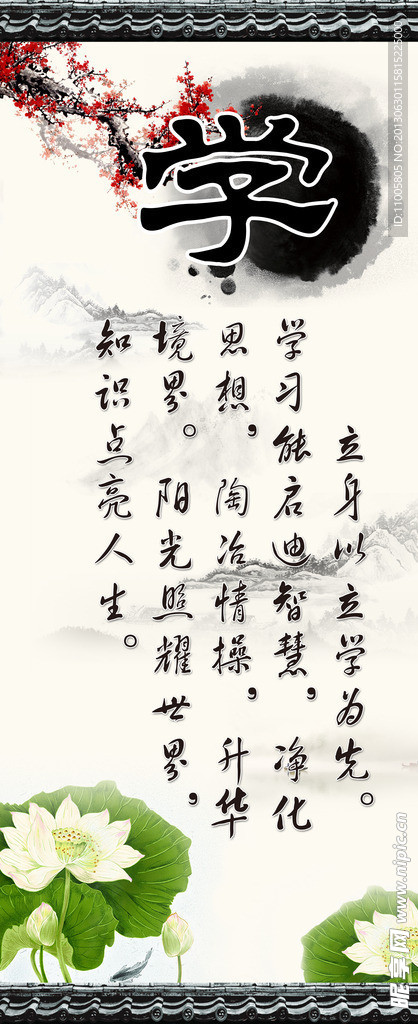 学
立身以立学为先。
学习能启迪智慧，净化
思想，陶冶情操，升华
境界。阳光照耀世界，
知识点亮人生。
ID:11005805 NO:20130630115815225000
昵享网 www.nipic.cn